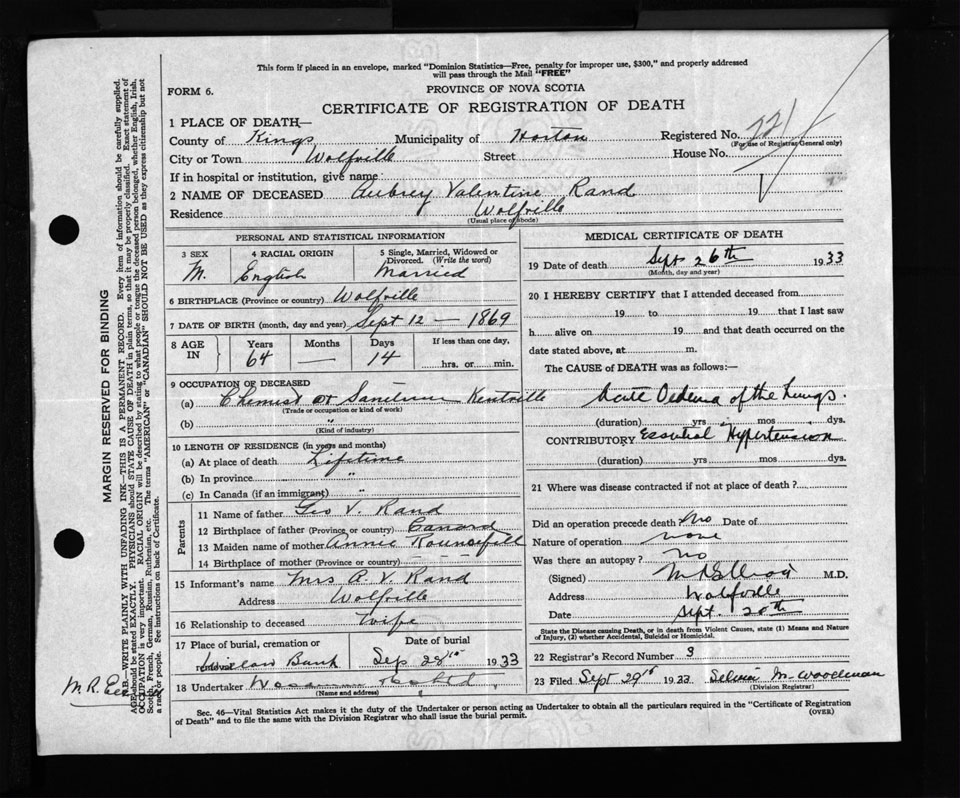 This form if placed in an envelope, marked "Dominion Statistics—Free, penalty for improper use, $300," and properly addressed
will pass through the Mail "FREE"
FORM 6.
PROVINCE OF NOVA SCOTIA
CERTIFICATE OF REGISTRATION OF DEATH
1 PLACE OF DEATH—
County of Kings Municipality of Horton Registered No. 221
(For use of Registrar General only)
City or Town Wolfville Street House No.
If in hospital or institution, give name:
2 NAME OF DECEASED Aubrey Valentine Rand
Residence Wolfville
(Usual place of abode)
PERSONAL AND STATISTICAL INFORMATION
3 SEX M. 4 RACIAL ORIGIN English 5 Single, Married, Widowed or Divorced. (Write the word) Married
6 BIRTHPLACE (Province or country) Wolfville
7 DATE OF BIRTH (month, day and year) Sept 12 — 1869
8 AGE IN Years 64 Months — Days 14 If less than one day, hrs. or min.
9 OCCUPATION OF DECEASED
(a) Chemist at Sanitarium Kentville
(Trade or occupation or kind of work)
(b) "
(Kind of industry)
10 LENGTH OF RESIDENCE (in years and months)
(a) At place of death Lifetime
(b) In province "
(c) In Canada (if an immigrant) "
Parents
11 Name of father Geo V. Rand
12 Birthplace of father (Province or country) Canard
13 Maiden name of mother Annie Rounsfell
14 Birthplace of mother (Province or country)
15 Informant's name Mrs A. V. Rand
Address Wolfville
16 Relationship to deceased Wife
17 Place of burial, cremation or removal Willow Bank Date of burial Sep 28th 1933
18 Undertaker
(Name and address)
MEDICAL CERTIFICATE OF DEATH
19 Date of death Sept 26th 1933
(Month, day and year)
20 I HEREBY CERTIFY that I attended deceased from
19 to 19 that I last saw
h alive on 19 and that death occurred on the
date stated above, at m.
The CAUSE of DEATH was as follows:—
Acute Oedema of the Lungs.
(duration) yrs mos dys.
CONTRIBUTORY Essential Hypertension
(duration) yrs mos dys.
21 Where was disease contracted if not at place of death?
Did an operation precede death No Date of
Nature of operation none
Was there an autopsy? no
(Signed) M.D.
Address Wolfville
Date Sept. 20th
State the Disease causing Death, or in death from Violent Causes, state (1) Means and Nature
of Injury, (2) whether Accidental, Suicidal or Homicidal.
22 Registrar's Record Number 3
23 Filed Sept 29th 1933 M. Woodman
(Division Registrar)
Sec. 46—Vital Statistics Act makes it the duty of the Undertaker or person acting as Undertaker to obtain all the particulars required in the "Certificate of Registration
of Death" and to file the same with the Division Registrar who shall issue the burial permit.
(OVER)
MARGIN RESERVED FOR BINDING
N.B.—WRITE PLAINLY WITH UNFADING INK—THIS IS A PERMANENT RECORD. Every item of information should be carefully supplied.
AGE should be stated EXACTLY. PHYSICIANS should STATE CAUSE OF DEATH in plain terms, so that it may be properly classified. Exact statement of
OCCUPATION is very important. RACIAL ORIGIN will be described by stating to what people or tongue the deceased person belonged, whether English, Irish,
Scotch, French, German, Russian, Ruthenian, etc. The terms "AMERICAN" or "CANADIAN" SHOULD NOT BE USED as they express citizenship but not
a race or people. See instructions on back of Certificate.
M. R.